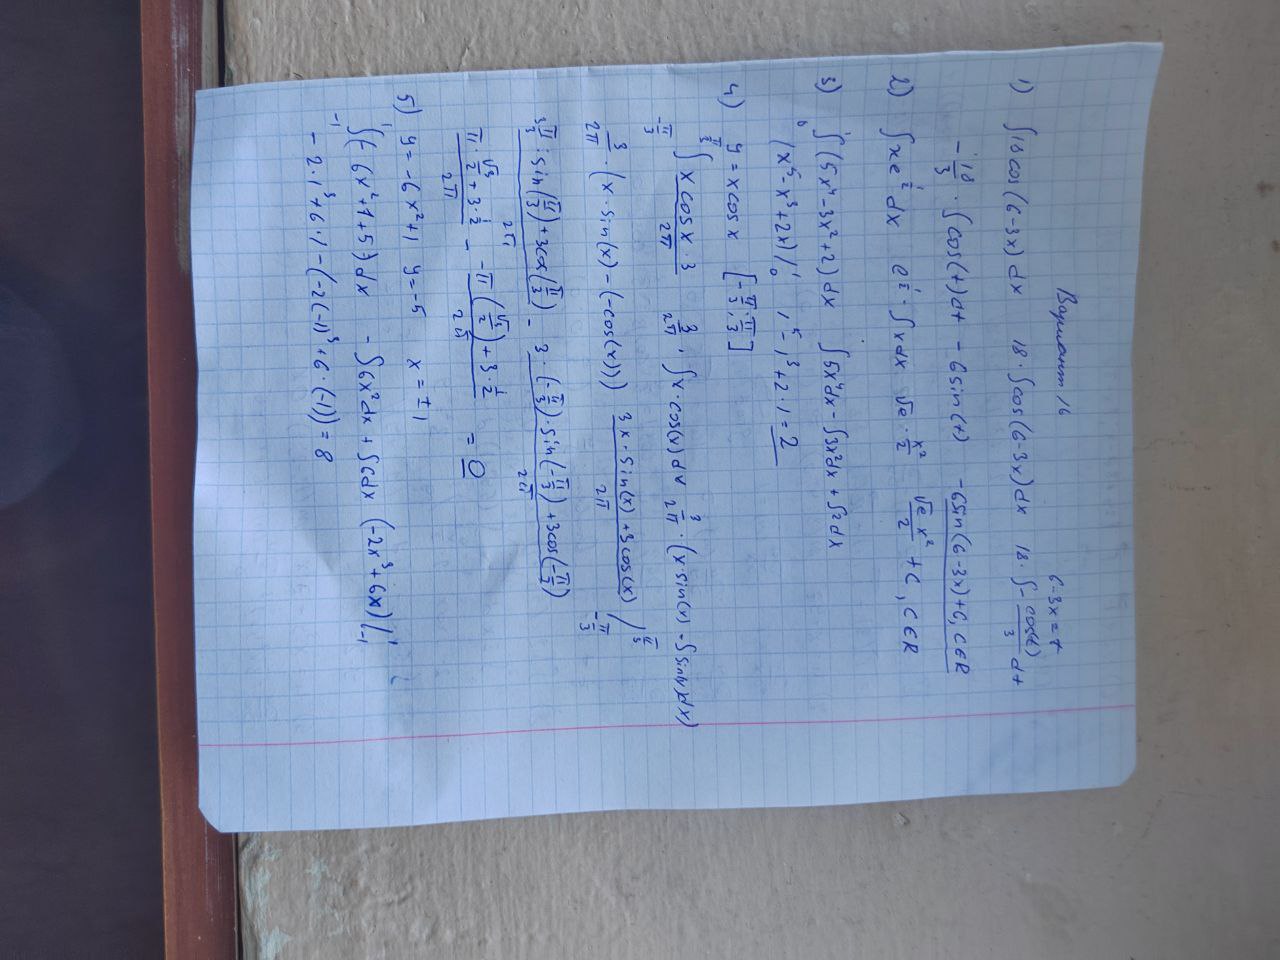 Вариант 16
6-3x=t
1) ∫18cos(6-3x)dx 18·∫cos(6-3x)dx 18·∫-cos(t)/3 dt
-18/3·∫cos(t)dt -6sin(t) -6sin(6-3x)+C, C∈R
2) ∫xe^(1/2)dx e^(1/2)·∫xdx √e·x²/2 √e x²/2 +C, C∈R
3) ∫₀¹(5x⁴-3x²+2)dx ∫5x⁴dx-∫3x²dx+∫2dx
(x⁵-x³+2x)/₀¹ 1⁵-1³+2·1=2
4) y=xcosx [-π/3;π/3]
∫ xcosx·3/2π 3/2π·∫x·cos(x)dx 3/2π·(x·sin(x)-∫sin(x)dx)
3/2π·(x·sin(x)-(-cos(x))) 3x·sin(x)+3cos(x)/2π /
3π/3·sin(π/3)+3cos(π/3)/2π - 3·(-π/3)·sin(-π/3)+3cos(-π/3)/2π
π·√3/2+3·1/2 /2π - -π(√3/2)+3·1/2 /2π =0
5) y=-6x²+1 y=-5 x=±1
∫₋₁¹(-6x²+1+5)dx -∫6x²dx+∫6dx (-2x³+6x)/₋₁¹
-2·1³+6·1-(-2(-1)³+6·(-1))=8